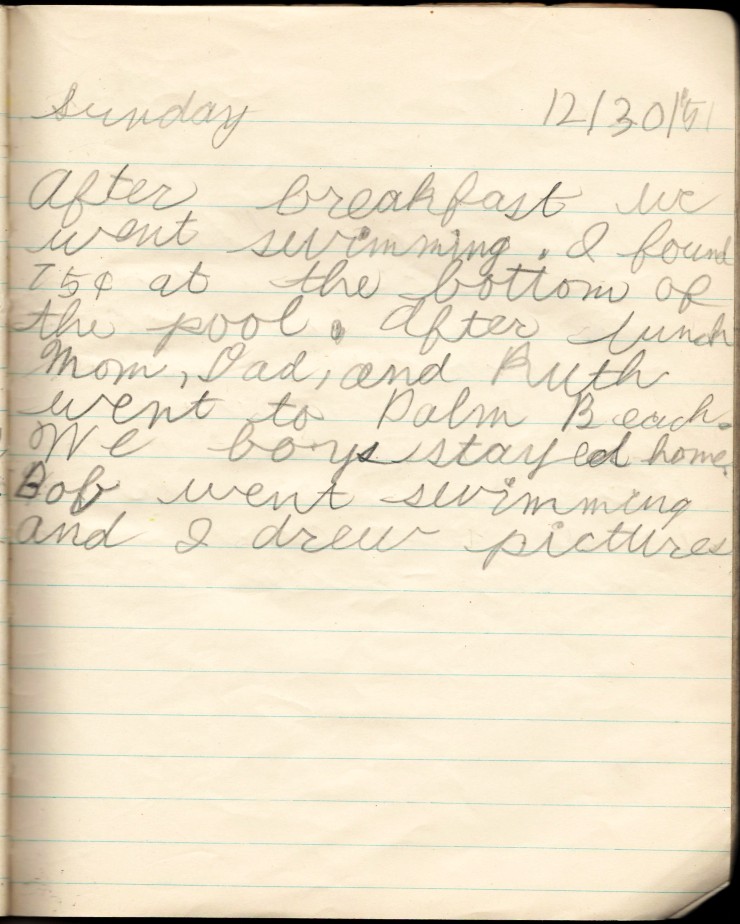 Sunday 12/30/51
After breakfast we
went swimming. I found
75¢ at the bottom of
the pool. After lunch
Mom, Dad, and Ruth
went to Palm Beach.
We boys stayed home.
Bob went swimming
and I drew pictures